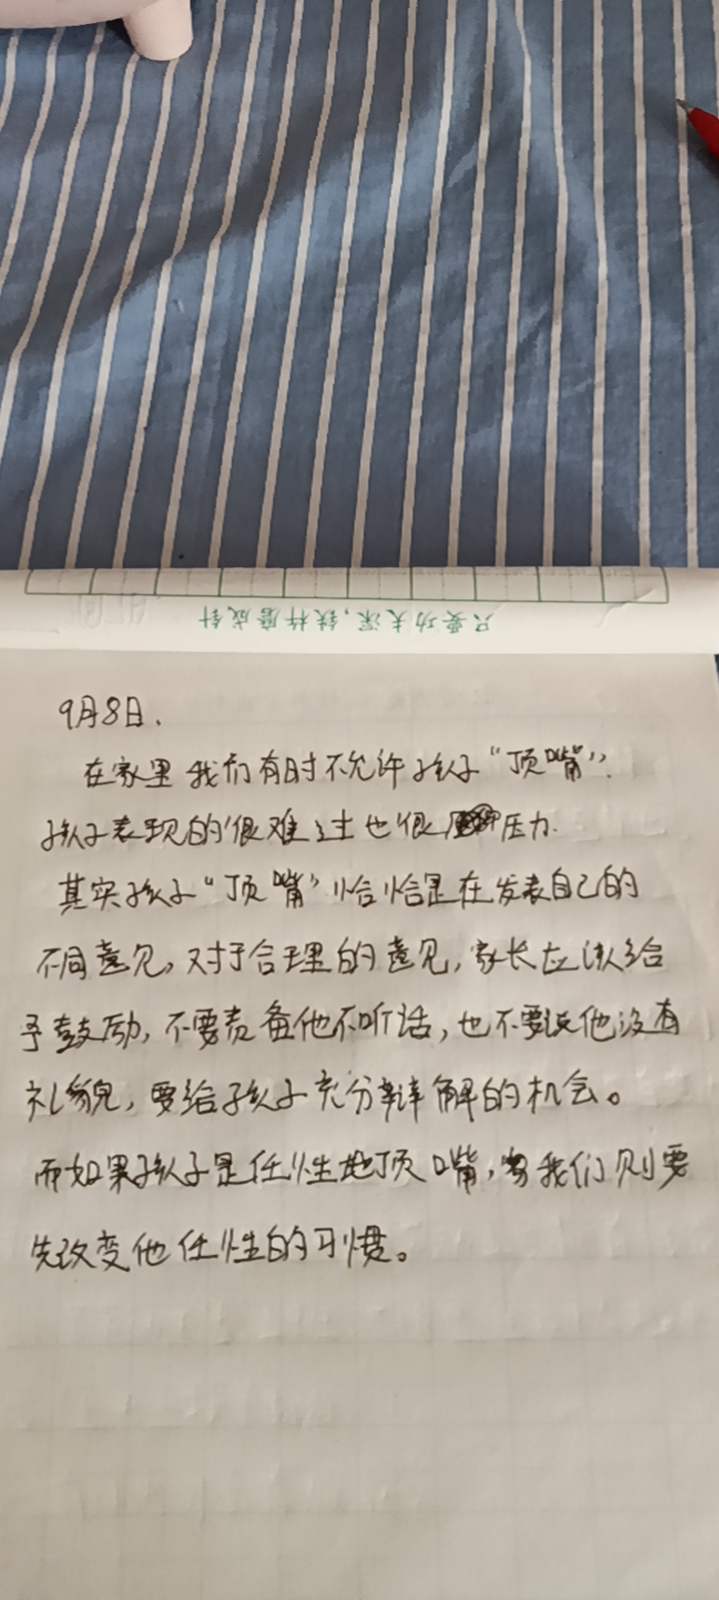 只要功夫深，铁杵磨成针
9月8日.
在家里我们有时不允许孩子“顶嘴”.
孩子表现的很难过也很压力.
其实孩子“顶嘴”恰恰是在发表自己的
不同意见，对于合理的意见，家长应该给
予鼓励，不要责备他不听话，也不要说他没有
礼貌，要给孩子充分辩解的机会。
而如果孩子是任性地顶嘴，我们则要
先改变他任性的习惯。